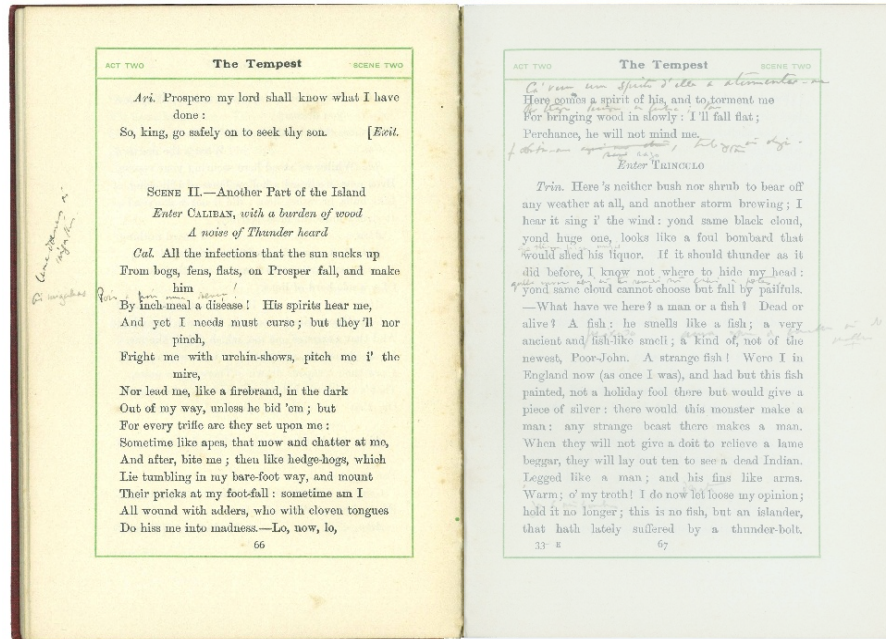 ACT TWO The Tempest SCENE TWO
Ari. Prospero my lord shall know what I have
done :
So, king, go safely on to seek thy son. [Exit.
SCENE II.—Another Part of the Island
Enter CALIBAN, with a burden of wood
A noise of Thunder heard
Cal. All the infections that the sun sucks up
From bogs, fens, flats, on Prosper fall, and make
him
By inch-meal a disease ! His spirits hear me,
And yet I needs must curse ; but they'll nor
pinch,
Fright me with urchin-shows, pitch me i' the
mire,
Nor lead me, like a firebrand, in the dark
Out of my way, unless he bid 'em ; but
For every trifle are they set upon me :
Sometime like apes, that mow and chatter at me,
And after, bite me ; then like hedge-hogs, which
Lie tumbling in my bare-foot way, and mount
Their pricks at my foot-fall : sometime am I
All wound with adders, who with cloven tongues
Do hiss me into madness.—Lo, now, lo,
66
ACT TWO The Tempest SCENE TWO
Here comes a spirit of his, and to torment me
For bringing wood in slowly : I'll fall flat ;
Perchance, he will not mind me.
Enter TRINCULO
Trin. Here 's neither bush nor shrub to bear off
any weather at all, and another storm brewing ; I
hear it sing i' the wind : yond same black cloud,
yond huge one, looks like a foul bombard that
would shed his liquor. If it should thunder as it
did before, I know not where to hide my head :
yond same cloud cannot choose but fall by pailfuls.
—What have we here ? a man or a fish ? Dead or
alive ? A fish : he smells like a fish ; a very
ancient and fish-like smell ; a kind of, not of the
newest, Poor-John. A strange fish ! Were I in
England now (as once I was), and had but this fish
painted, not a holiday fool there but would give a
piece of silver : there would this monster make a
man : any strange beast there makes a man.
When they will not give a doit to relieve a lame
beggar, they will lay out ten to see a dead Indian.
Legged like a man ; and his fins like arms.
Warm ; o' my troth ! I do now let loose my opinion ;
hold it no longer ; this is no fish, but an islander,
that hath lately suffered by a thunder-bolt.
33 E 67